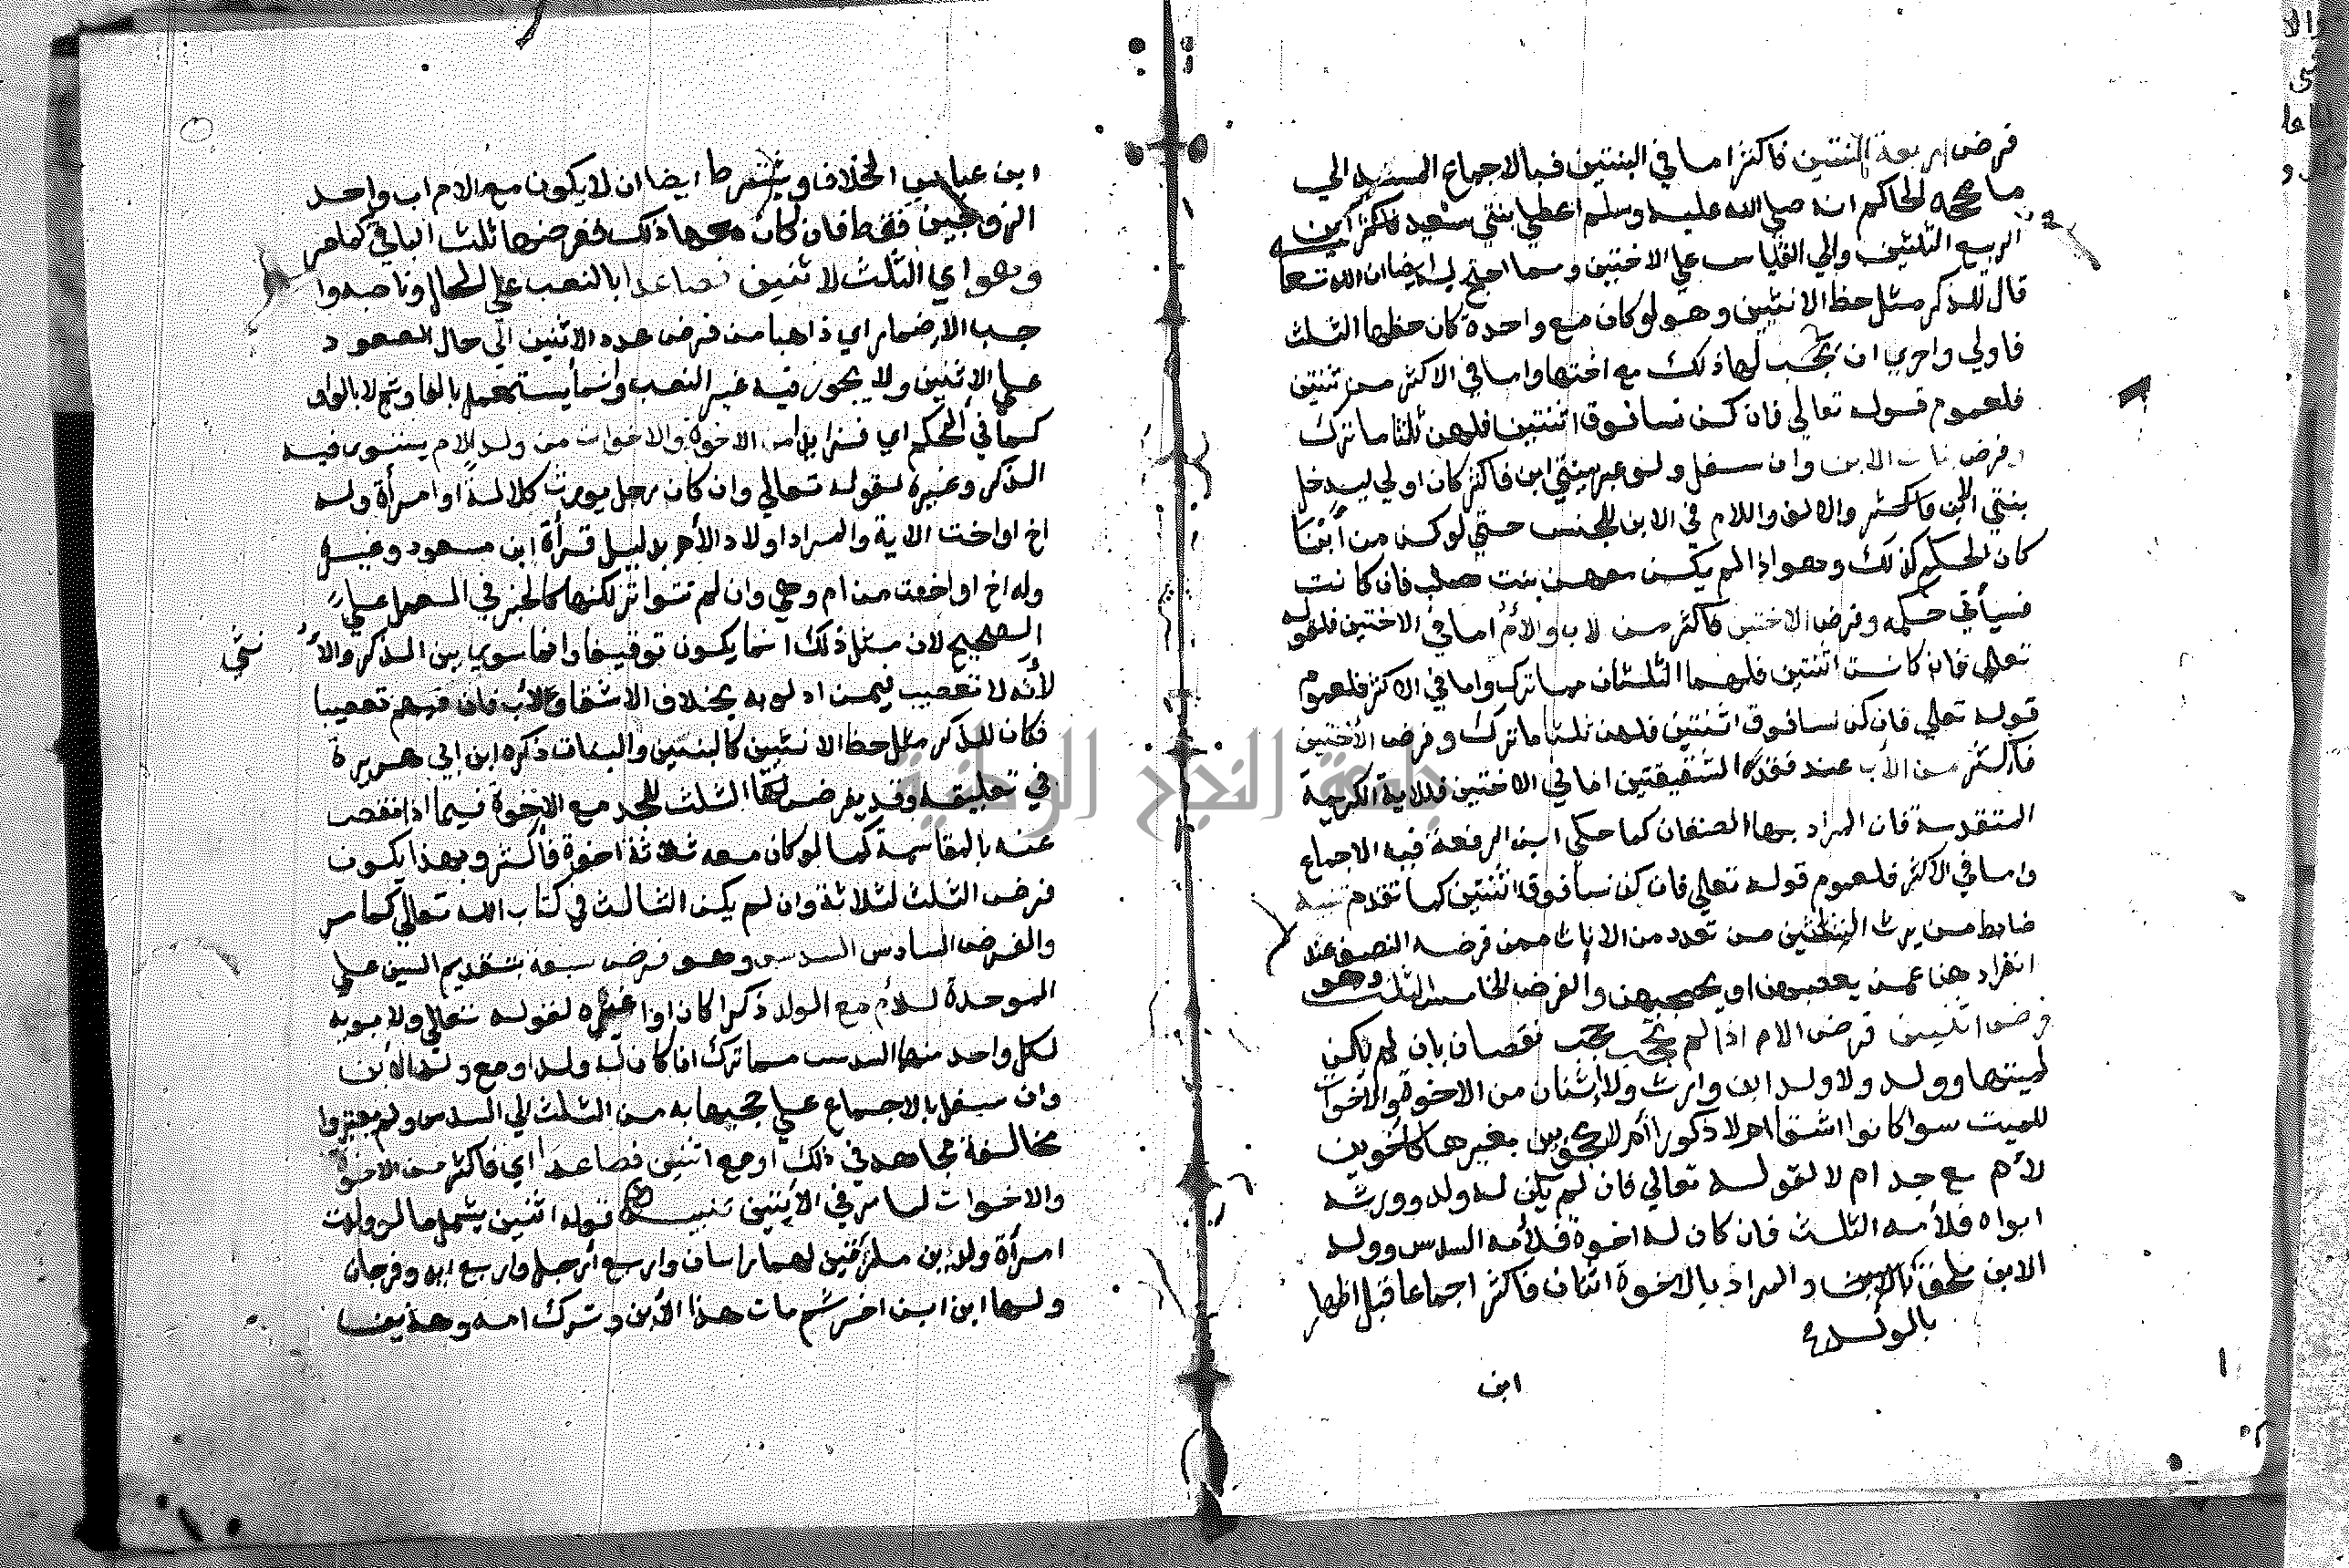 فرض اربعة البنتين فاكثر اما في البنتين فبالاجماع المستند الي
ما صححه الحاكم انه صلي الله عليه وسلم اعطي بنتي سعيد بن
الربيع الثلثين والي القياس علي الاختين ومما احتج به ايضا ان الله تعا
قال للذكر مثل حظ الانثيين وهو لو كان مع واحدة كان حظها الثلث
فاولي واحري ان يجب لها ذلك مع اختها واما في الاكثر من ثنتين
فلعموم قوله تعالي فان كن نسا فوق اثنتين فلهن ثلثا ما ترك
وفرض بنات الابن وان سفل ولو عبر ببنتي ابن فاكثر كان اولي ليدخل
بنتي الابن فاكثر والالف واللام في الابن للجنس حتي لو كن من ابنا
كان الحكم كذلك وهو اذا لم يكن معهن بنت صلب فان كانت
فسيأتي حكمه وفرض الاختين فاكثر من لاب والأم اما في الاختين فلقوله
تعالي فان كانتا اثنتين فلهما الثلثان مما ترك واما في الاكثر فلعموم
قوله تعالي فان كن نسا فوق اثنتين فلهن ثلثا ما ترك وفرض الأختين
فأكثر من الأب عند فقد الشقيقتين اما في الاختين فللاية الكريمة
المتقدمة فان المراد بها الصنفان كما حكي ابن الرفعة فيه الاجماع
واما في الاكثر فلعموم قوله تعالي فان كن نسا فوق اثنتين كما تقدم تنبيه
ضابط من يرث الثلثين من تعدد من الاناث ممن فرضه النصف عند
انفرادهن عمن يعصبهن او يحجبهن والفرض الخامس الثلث وهو
فرض اثنين فرض الام اذا لم تحجب حجب نقصان بان لم يكن
لميتها وولد ولا ولد ابن وارث ولا إثنان من الاخوة والاخوات
للميت سوا كانوا اشقا ام لا ذكورا أم لا محجوبين بغيرها كأخوين
لأم مع جد ام لا لقوله تعالي فان لم يكن له ولد وورثه
ابواه فلأمه الثلث فان كان له اخوة فلأمه السدس وولد
الابن ملحق بالولد والمراد بالاخوة اثنان فاكثر اجماعا قبل اظهار
بالولد
ابن
ابن عباس الخلاف ويشترط ايضا ان لا يكون مع الام اب واحد
الزوجين فقط فان كان معها ذلك ففرضها ثلث الباقي كما مر
وهو اي الثلث لاثنين فصاعدا بالنصب علي الحال وناصبه وا
جب الاضمار اي ذاهبا من فرض عدد الاثنين الي حال الصعود
علي الاثنين ولا يجوز فيه غير النصب وانما يستعمل بالفا وثم لا بالواو
كما في المحكم اي فزايدا من الاخوة والاخوات من ولد الام يستوي فيه
الذكر وغيره لقوله تعالي وان كان رجل يورث كلالة او امرأة وله
اخ او اخت الاية والمراد اولاد الأم بدليل قرأة ابن مسعود وغيره
وله اخ او اخت من ام وهي وان لم تتواتر لكنها كالخبر في العمل علي
الصحيح لان مثل ذلك انما يكون توقيفا وانما سوي بين الذكر والأ نثي
لأنه لا تعصيب فيمن ادلوا به بخلاف الاشقا والأب فان فيهم تعصيبا
فكان للذكر مثل حظ الانثيين كالبنين والبنات ذكره ابن ابي هريرة
في تعليقه وقد يفرض الثلث للجد مع الاخوة فيما اذا نقص
عنه بالمقاسمة كما لو كان معه ثلاثة اخوة فأكثر وبهذا يكون
فرض الثلث لثلاثة وان لم يكن الثالث في كتاب الله تعالي كما مر
والفرض السادس السدس وهو فرض سبعة بتقديم السين علي
الموحدة للأم مع الولد ذكرا كان او غيره لقوله تعالي ولابويه
لكل واحد منهما السدس مما ترك ان كان له ولد او مع ولد الابن
وان سفل بالاجماع علي حجبها به من الثلث الي السدس ولم يعتبروا
مخالفة مجاهد في ذلك او مع اثنين فصاعدا اي فاكثر من الاخوة
والاخوات لما مر في الأيتين تنبيه قوله اثنين يشمل ما لو ولدت
امرأة ولدين ملتزقين لهما راسان واربع أرجل واربع ايد وفرجان
ولها ابن اخر ثم مات هذا الابن وترك امه وهذين